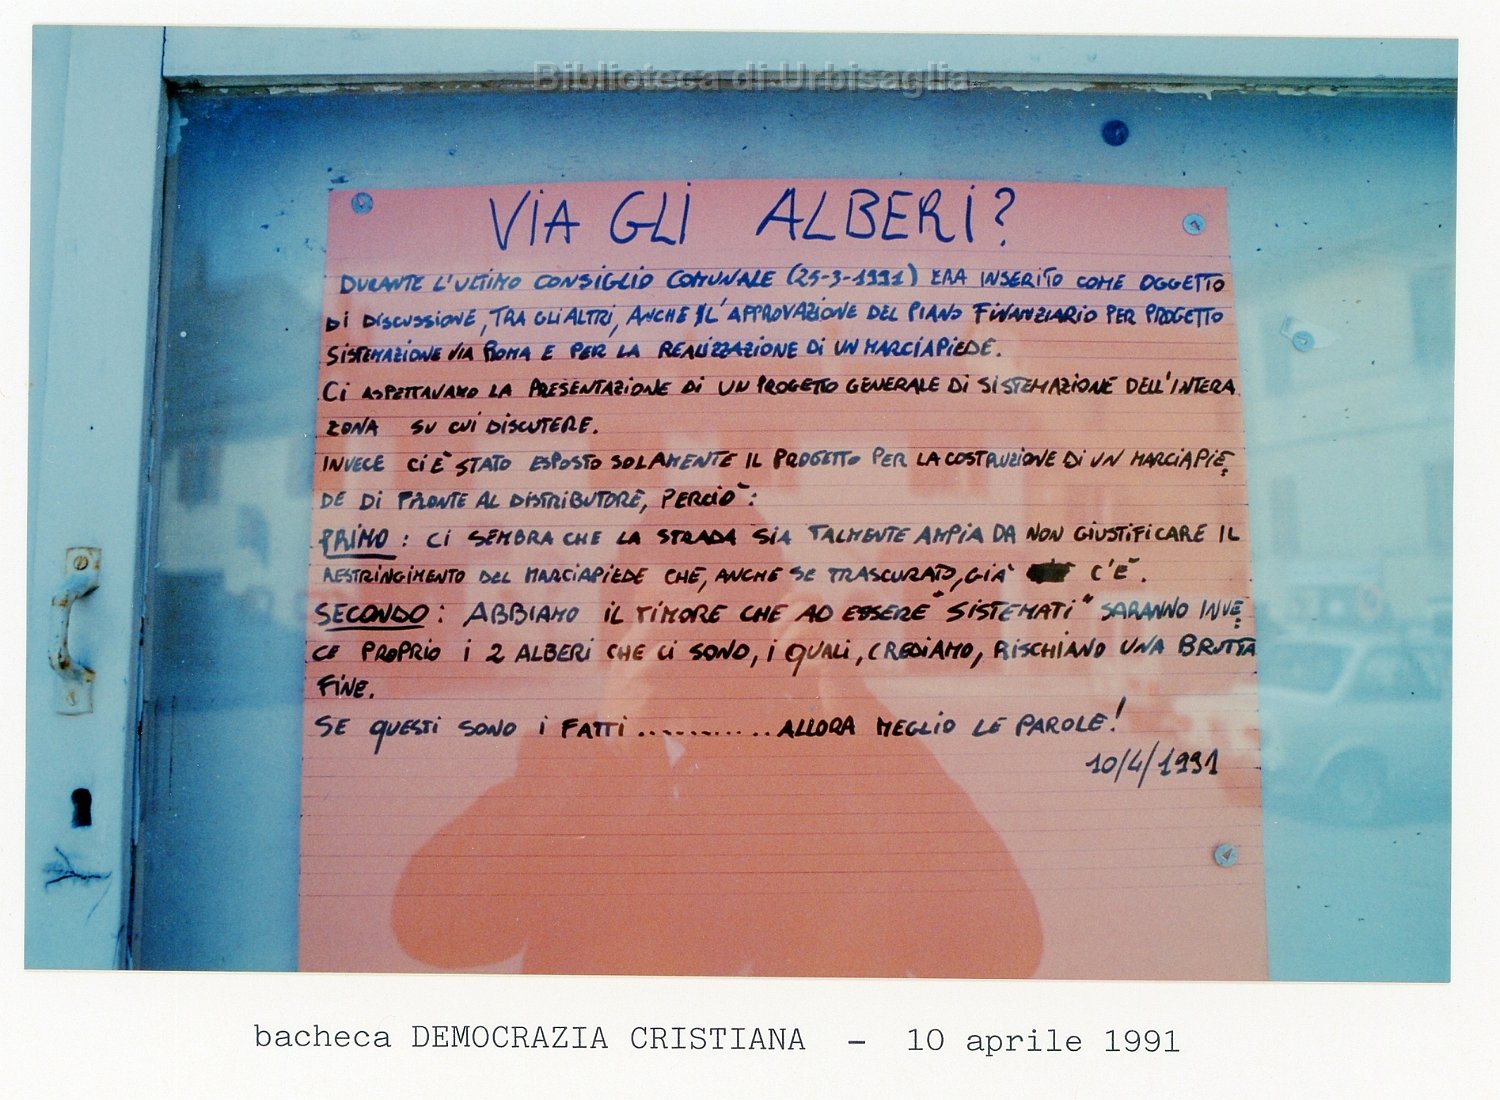 Biblioteca di Urbisaglia
VIA GLI ALBERI?
DURANTE L'ULTIMO CONSIGLIO COMUNALE (25-3-1991) ERA INSERITO COME OGGETTO
DI DISCUSSIONE, TRA GLI ALTRI, ANCHE L'APPROVAZIONE DEL PIANO FINANZIARIO PER PROGETTO
SISTEMAZIONE VIA ROMA E PER LA REALIZZAZIONE DI UN MARCIAPIEDE.
CI ASPETTAVAMO LA PRESENTAZIONE DI UN PROGETTO GENERALE DI SISTEMAZIONE DELL'INTERA
ZONA SU CUI DISCUTERE.
INVECE CI È STATO ESPOSTO SOLAMENTE IL PROGETTO PER LA COSTRUZIONE DI UN MARCIAPIE=
DE DI FRONTE AL DISTRIBUTORE, PERCIÒ:
PRIMO: CI SEMBRA CHE LA STRADA SIA TALMENTE AMPIA DA NON GIUSTIFICARE IL
RESTRINGIMENTO DEL MARCIAPIEDE CHE, ANCHE SE TRASCURATO, GIÀ C'È.
SECONDO: ABBIAMO IL TIMORE CHE AD ESSERE "SISTEMATI" SARANNO INVE=
CE PROPRIO I 2 ALBERI CHE CI SONO, I QUALI, CREDIAMO, RISCHIANO UNA BRUTTA
FINE.
SE QUESTI SONO I FATTI ........... ALLORA MEGLIO LE PAROLE!
10/4/1991
bacheca DEMOCRAZIA CRISTIANA - 10 aprile 1991